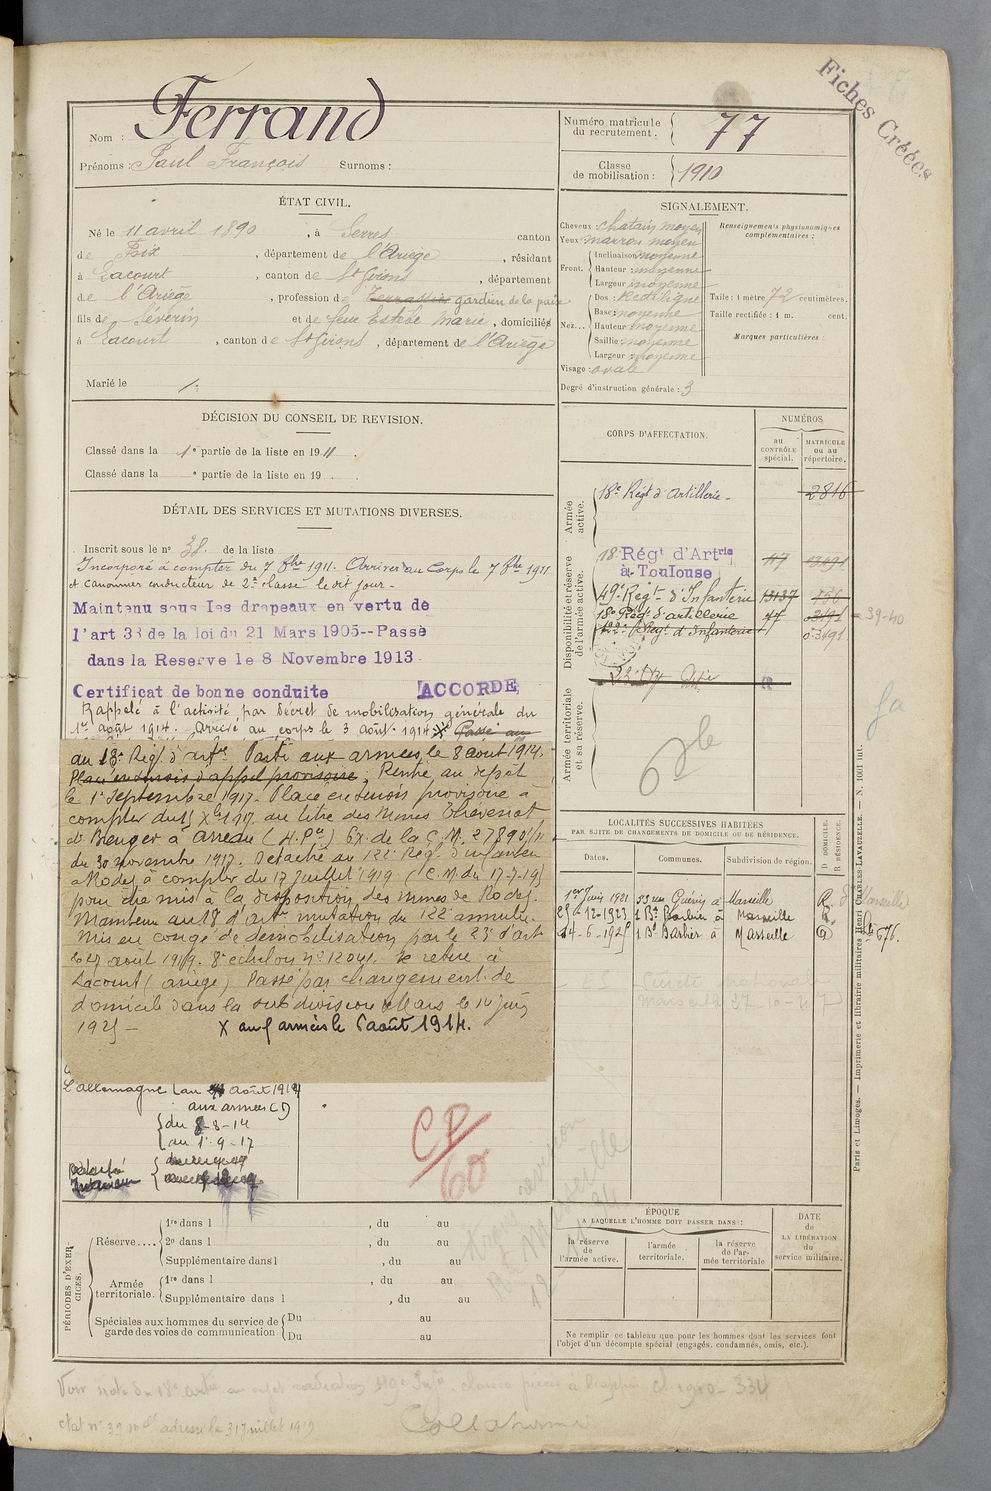 Fiches Créées
Nom : Ferrand
Prénoms : Paul François Surnoms :
Numéro matricule du recrutement. 77
Classe de mobilisation : 1910
ÉTAT CIVIL.
Né le 11 avril 1890, à Serres canton
de Foix, département de l'Ariège, résidant
à Lacourt, canton de St Girons, département
de l'Ariège, profession de Terrassier gardien de la paix
fils de Séverin et de feue Estèbe Marie, domiciliés
à Lacourt, canton de St Girons, département de l'Ariège
Marié le
SIGNALEMENT.
Cheveux : chatain moyen
Yeux : marron moyen
Front. Inclinaison moyenne
Hauteur : moyenne
Largeur moyenne
Nez... Dos : Rectiligne
Base : moyenne
Hauteur moyenne
Saillie moyenne
Largeur moyenne
Visage : ovale
Renseignements physionomiques complémentaires :
Taille : 1 mètre 72 centimètres.
Taille rectifiée : 1 m. cent.
Marques particulières :
Degré d'instruction générale : 3
DÉCISION DU CONSEIL DE REVISION.
Classé dans la 1e partie de la liste en 1911.
Classé dans la e partie de la liste en 19 .
DÉTAIL DES SERVICES ET MUTATIONS DIVERSES.
Inscrit sous le no 38. de la liste
Incorporé à compter du 7 8bre 1911. Arrivé au Corps le 7 8bre 1911
et canonnier conducteur de 2e classe le dit jour -
Maintenu sous les drapeaux en vertu de
l'art 33 de la loi du 21 Mars 1905--Passé
dans la Reserve le 8 Novembre 1913
Certificat de bonne conduite ACCORDÉ
Rappelé à l'activité par décret de mobilisation générale du
1er août 1914. Arrivé au corps le 3 août 1914 Passé au
au 18e Rég. d'artie Parti aux armées le 8 août 1914.
Placé en sursis d'appel provisoire; Rentré au dépôt
le 1er Septembre 1917. Placé en sursis provisoire à
compter du 15 Xbre 1917 au titre des Mines Thevenot
et Benger à Arreau (H. Pées) Ex. de la C.M. 27890
du 30 novembre 1917. Détaché au 122e Rég. d'infanterie
à Rodez à compter du 17 Juillet 1919 (C.M. du 17-7-19)
pour être mis à la disposition des Mines de Rodez.
Maintenu au 18 d'artie mutation du 122e annulée.
Mis en congé de démobilisation par le 23e d'art
le 27 août 1919. 8e échelon no 12041. Se retire à
Lacourt (Ariège) Passé par changement de
domicile dans la subdivision de Mars le 10 juin
1925 - X aux armées le 6 août 1914.
L'allemagne (au août 1914
aux armées (D)
du 8-8-14
au 1er-9-17
CP
60
CORPS D'AFFECTATION.
NUMÉROS
au CONTRÔLE spécial.
MATRICULE ou au répertoire.
Armée active.
18e Régt d'Artillerie - 2816
Disponibilité et réserve de l'armée active.
18 Régt d'Artrie à Toulouse 47
49e Régt d'Infanterie 13137 756
18e Régt d'artillerie 47 = 39-40
122e Régt d'Infanterie 03491
Armée territoriale et sa réserve.
LOCALITÉS SUCCESSIVES HABITÉES
PAR SUITE DE CHANGEMENTS DE DOMICILE OU DE RÉSIDENCE.
Dates. Communes. Subdivision de région. D DOMICILE. R RÉSIDENCE.
1er Juin 1921 33 rue Guérin à Marseille R.
25-12-1923 1 Bd Barbier à Marseille R.
14-6-1925 1 Bd Barbier à Marseille D R 676.
PÉRIODES D'EXERCICES.
Réserve.... 1re dans l , du au
2e dans l , du au
Supplémentaire dans l , du au
Armée territoriale. 1re dans l , du au
Supplémentaire dans l , du au
Spéciales aux hommes du service de garde des voies de communication Du au
Du au
ÉPOQUE
A LAQUELLE L'HOMME DOIT PASSER DANS :
la réserve de l'armée active.
l'armée territoriale.
la réserve de l'armée territoriale
DATE DE LA LIBÉRATION du service militaire.
Ne remplir ce tableau que pour les hommes dont les services font
l'objet d'un décompte spécial (engagés, condamnés, omis, etc.).
Paris et Limoges. — Imprimerie et librairie militaires Henri CHARLES-LAVAUZELLE. — N. 1001 int.